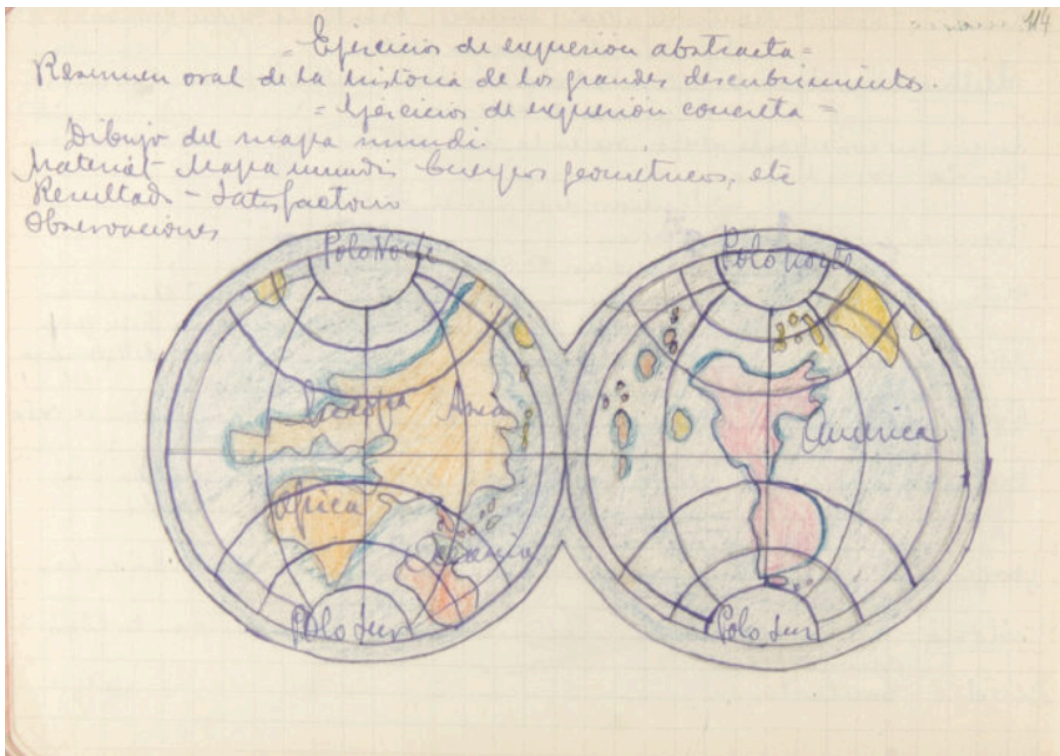 114
= Ejercicios de expresión abstracta =
Resumen oral de la historia de los grandes descubrimientos.
= Ejercicios de expresión concreta =
Dibujo del mapa mundi.
Material - Mapa mundi cuerpos geometricos, etc
Resultado - Satisfactorio
Observaciones
Polo Norte
Polo Norte
Europa Asia
America
Africa
Oceania
Polo Sur
Polo Sur